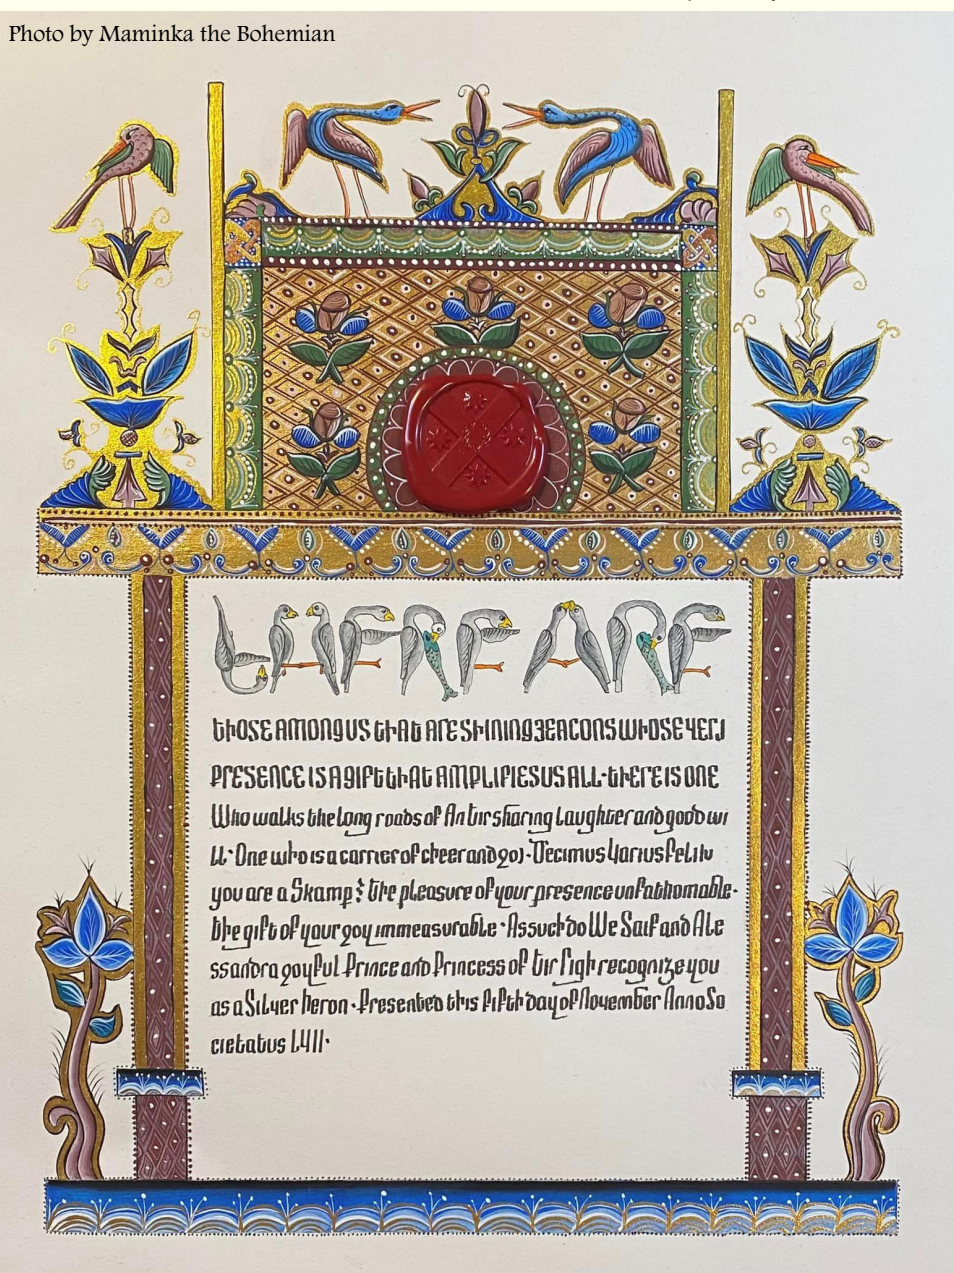 Photo by Maminka the Bohemian
THERE ARE
THOSE AMONG US THAT ARE SHINING BEACONS WHOSE VERY
PRESENCE IS A GIFT THAT AMPLIFIES US ALL · THERE IS ONE
Who walks the long roads of An tir sharing laughter and good wi
ll · One who is a carrier of cheer and joy · Decimus Varius Felix
you are a Skamp! The pleasure of your presence unfathomable ·
the gift of your joy immeasurable · As such do We Saif and Ale
ssandra joyful Prince and Princess of tir Righ recognize you
as a Silver heron · Presented this fifth day of November Anno So
cietatus LVII ·